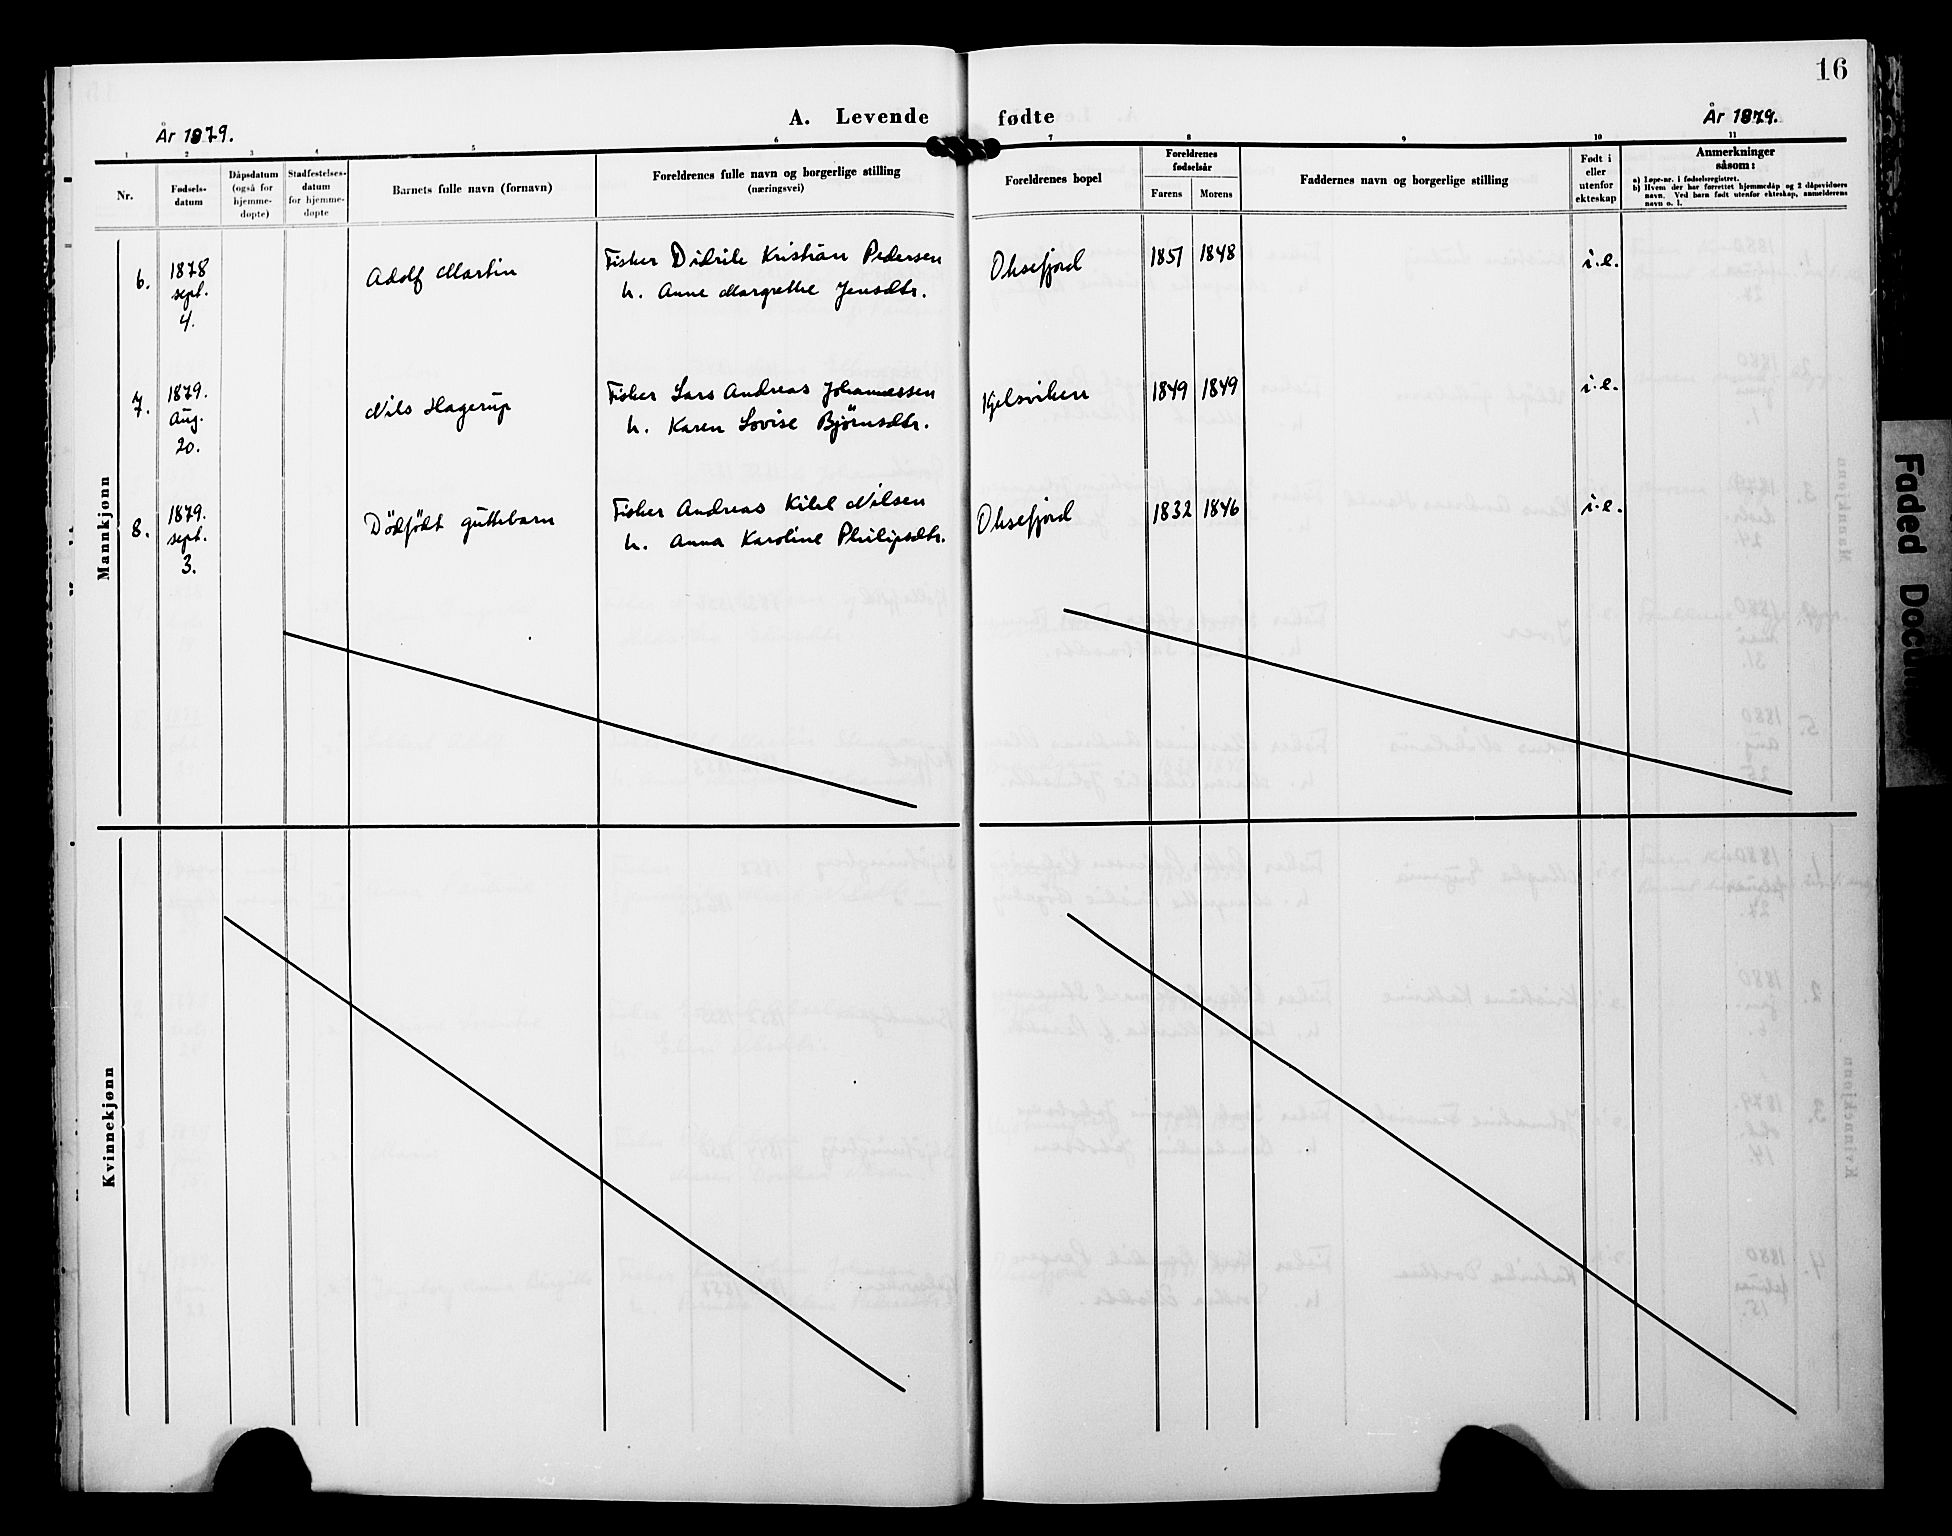 16
A. Levende fødte
År 1879.
År 1879.
1 2 3 4 5 6 7 8 9 10 11
Nr.
Fødsels-
datum
Dåpsdatum
(også for
hjemme-
døpte)
Stadfestelses-
datum
for hjemme-
døpte
Barnets fulle navn (fornavn)
Foreldrenes fulle navn og borgerlige stilling
(næringsvei)
Foreldrenes bopel
Foreldrenes
fødselsår
Farens
Morens
Faddernes navn og borgerlige stilling
Født i
eller
utenfor
ekteskap
Anmerkninger
såsom:
a) Løpe-nr. i fødselsregistret.
b) Hvem der har forrettet hjemmedåp og 2 dåpsvidners
navn. Ved barn født utenfor ekteskap, anmelderens
navn o. l.
Mannkjønn
6.
1878
sept.
4.
Adolf Martin
Fisker Didrik Kristian Pedersen
h. Anne Margrethe Jensdtr.
Oksefjord
1851
1848
i.e.
7.
1879.
Aug.
20.
Nils Hagerup
Fisker Lars Andreas Johannessen
h. Karen Lovise Bjørnsdtr.
Kjelsviken
1849
1849
i.e.
8.
1879.
sept.
3.
Dödfödt guttebarn
Fisker Andreas Kilil Nilsen
h. Anna Karoline Philipsdtr.
Oksefjord
1832
1846
i.e.
Kvinnekjønn
Faded